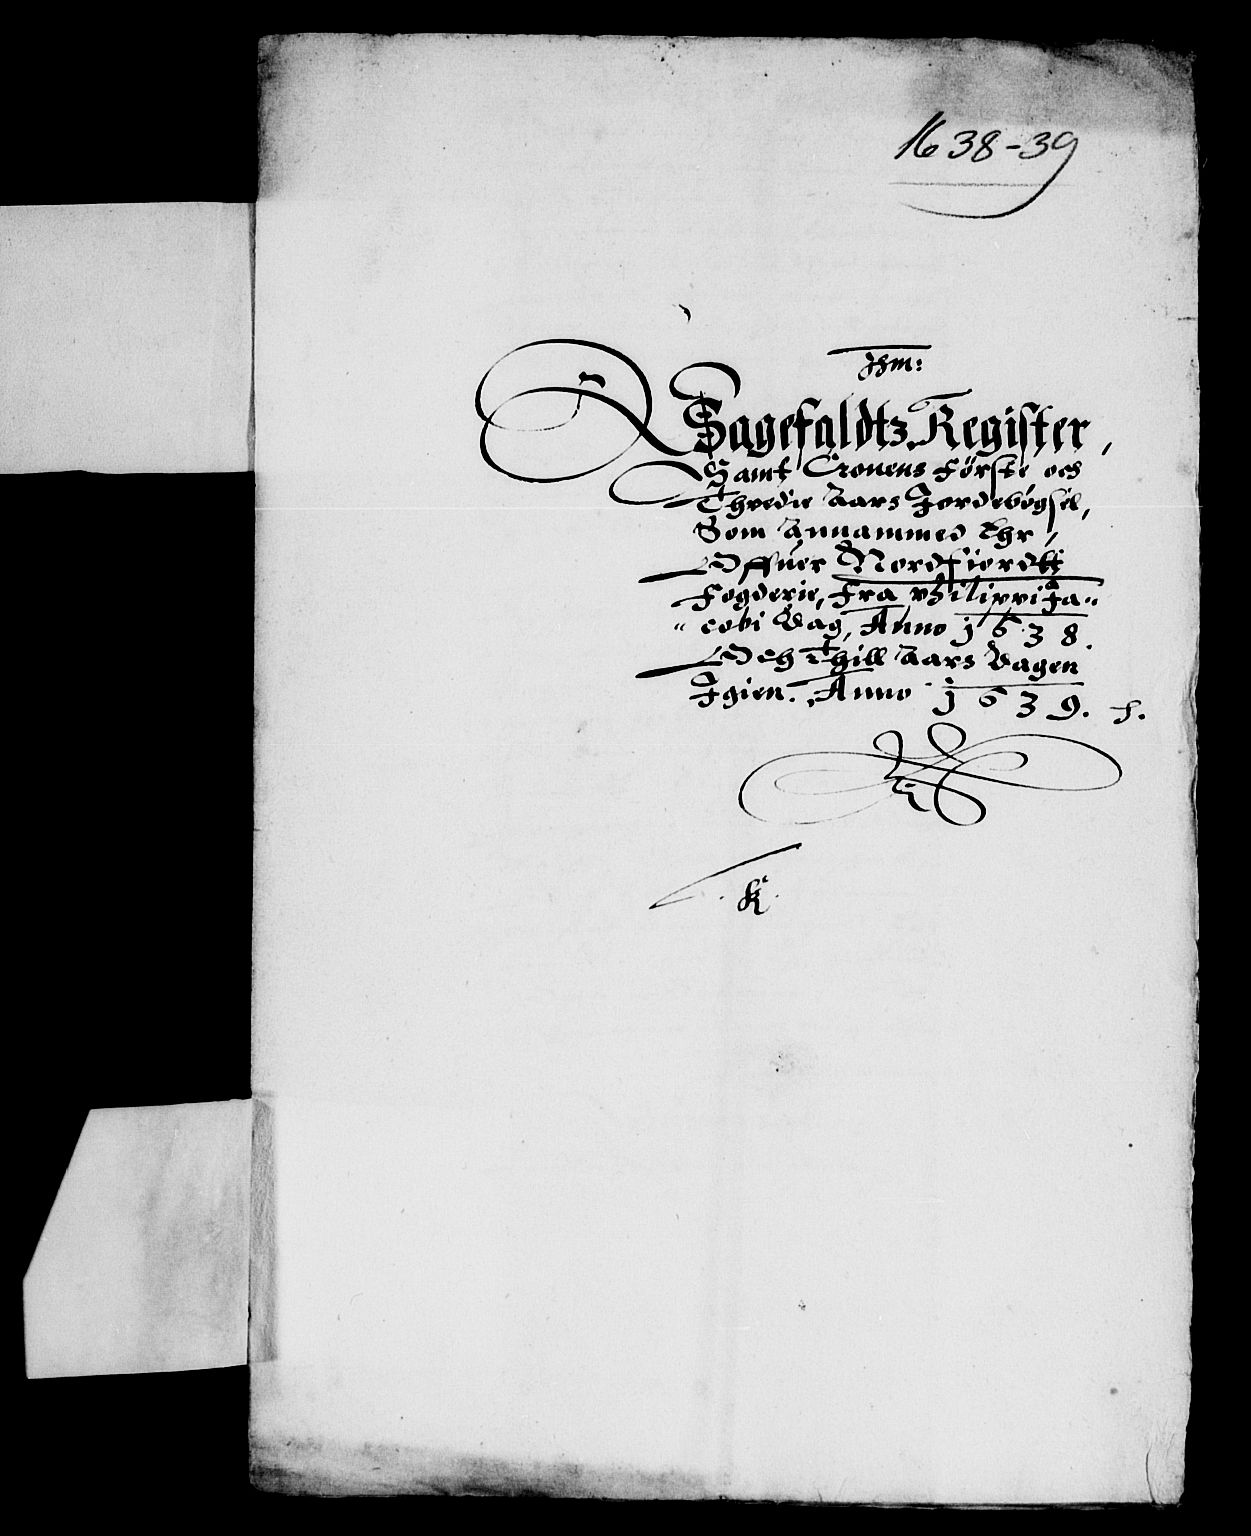 1638-39
Jhm:
Sagefaldtz Register,
Samt Cronens Første och
Thredie Aars Jordebøgsel,
Som Annammed Ehr,
Offuer Nordfiordtz
Fogderie, Fra Philippi Ja„
„cobi Dag, Anno 1638.
Och Thill Aars Dagen
Igien. Anno 1639.
K.